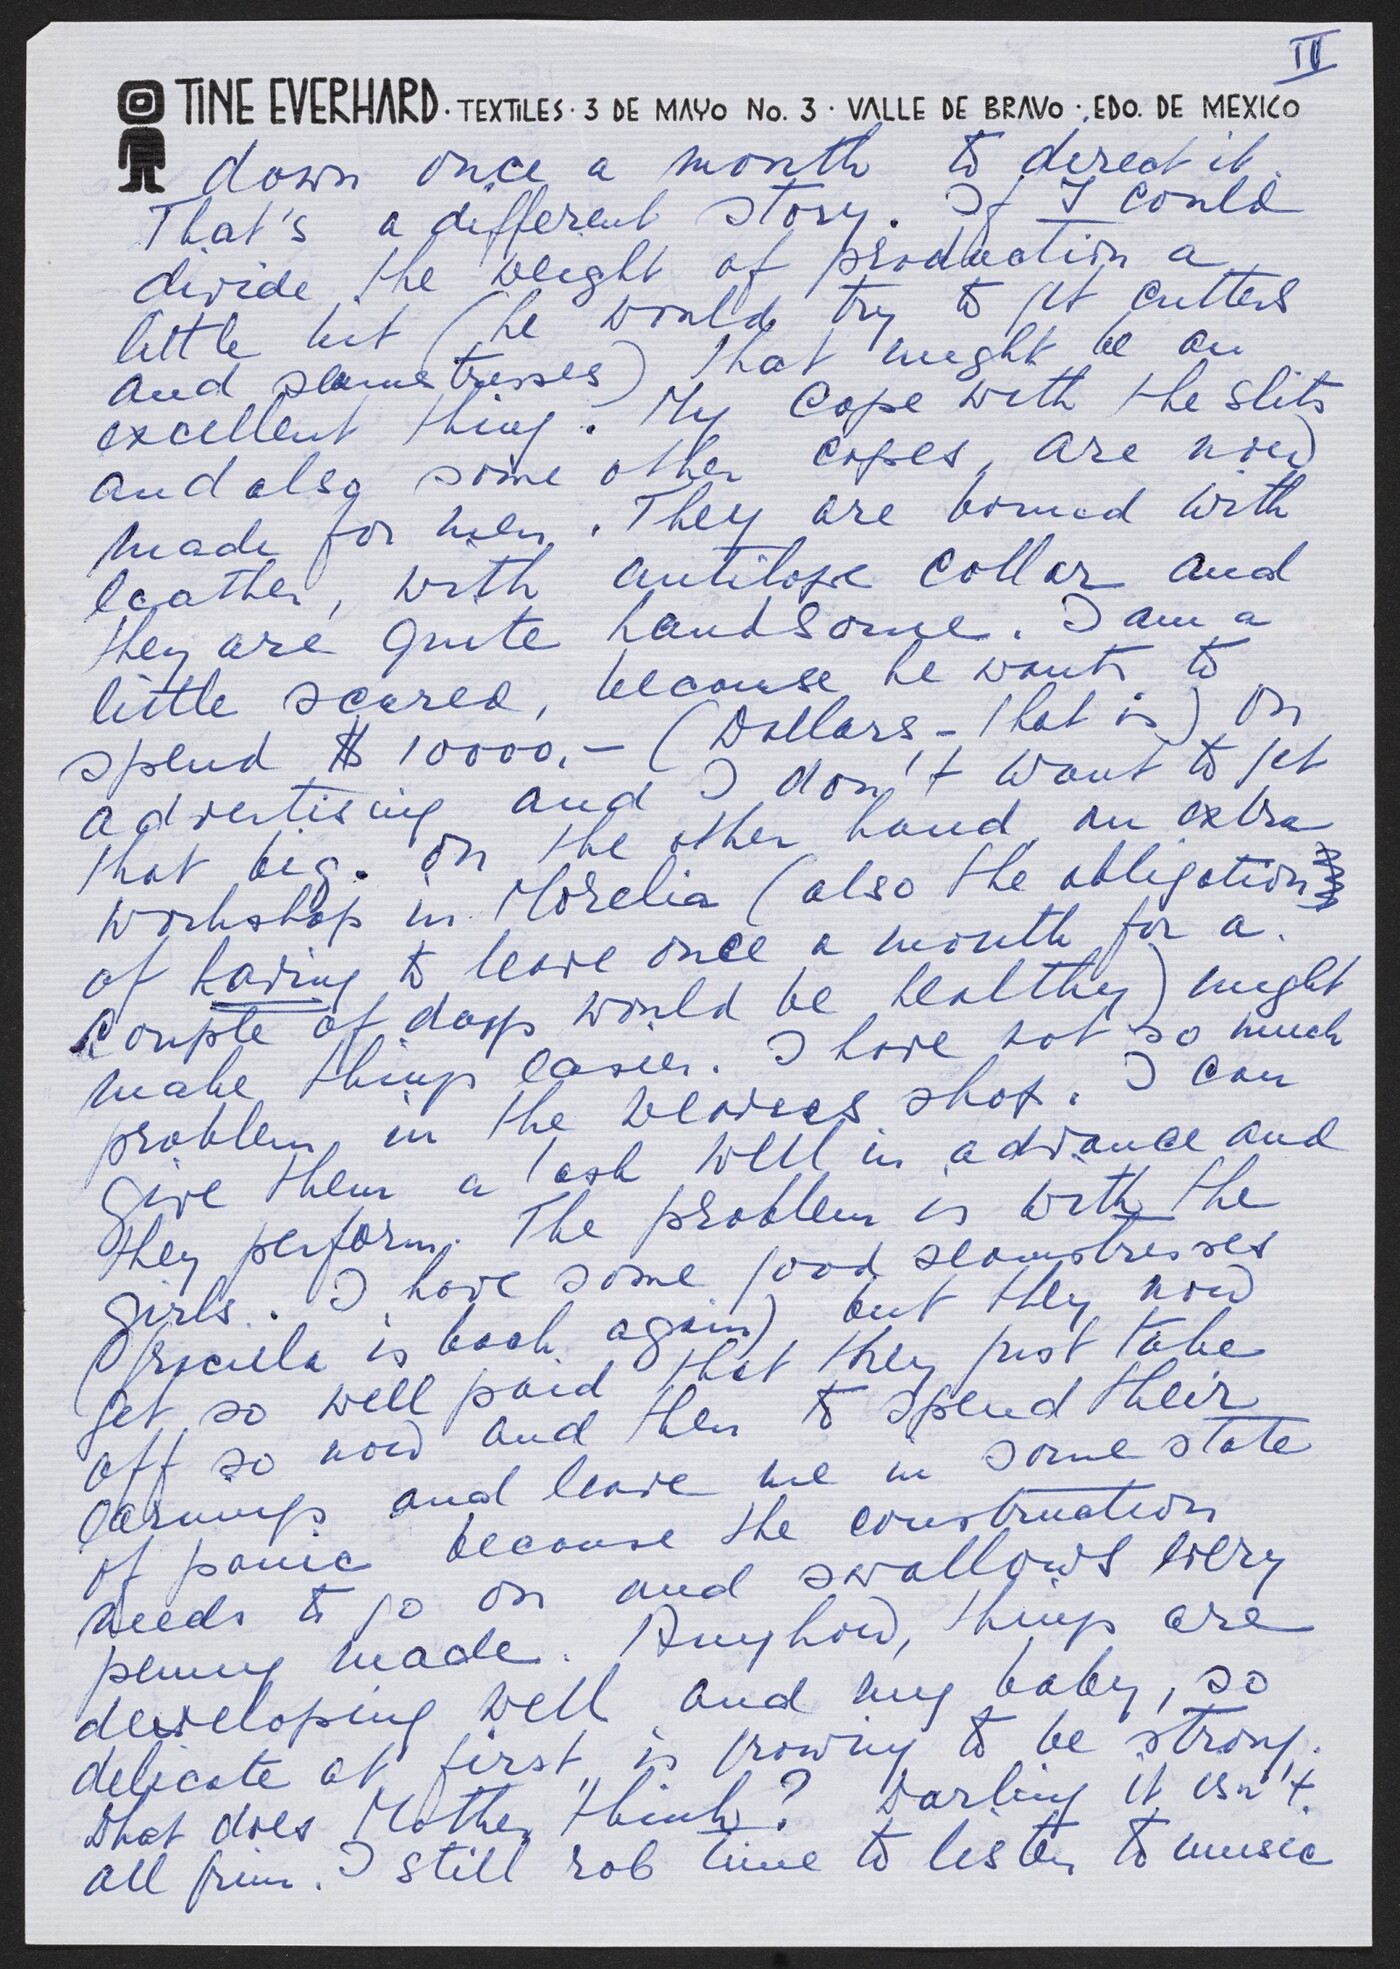 II
TINE EVERHARD · TEXTILES · 3 DE MAYO No. 3 · VALLE DE BRAVO · EDO. DE MEXICO
down once a month to direct it.
That's a different story. If I could
divide the weight of production a
little bit (he would try to get cutters
and seamstresses) that might be an
excellent thing. My Cape with the slits
and also some other capes, are now
made for men. They are bound with
leather, with antilope collar and
they are quite handsome. I am a
little scared, because he wants to
spend $ 10000.- (Dollars - that is) on
advertising and I don't want to get
that big. On the other hand, an extra
workshop in Morelia (also the obligation
of having to leave once a month for a
couple of days would be healthy) might
make things easier. I have not so much
problem in the weavers shop. I can
give them a task well in advance and
they perform. The problem is with the
girls. I have some good seamstresses
(Priscilla is back again) but they now
get so well paid that they just take
off so now and then to spend their
earnings and leave me in some state
of panic because the construction
needs to go on and swallows every
penny made. Anyhow, things are
developing well and my baby, so
delicate at first, is growing to be strong.
What does Mother think? Darling it isn't
all grim. I still rob time to listen to music